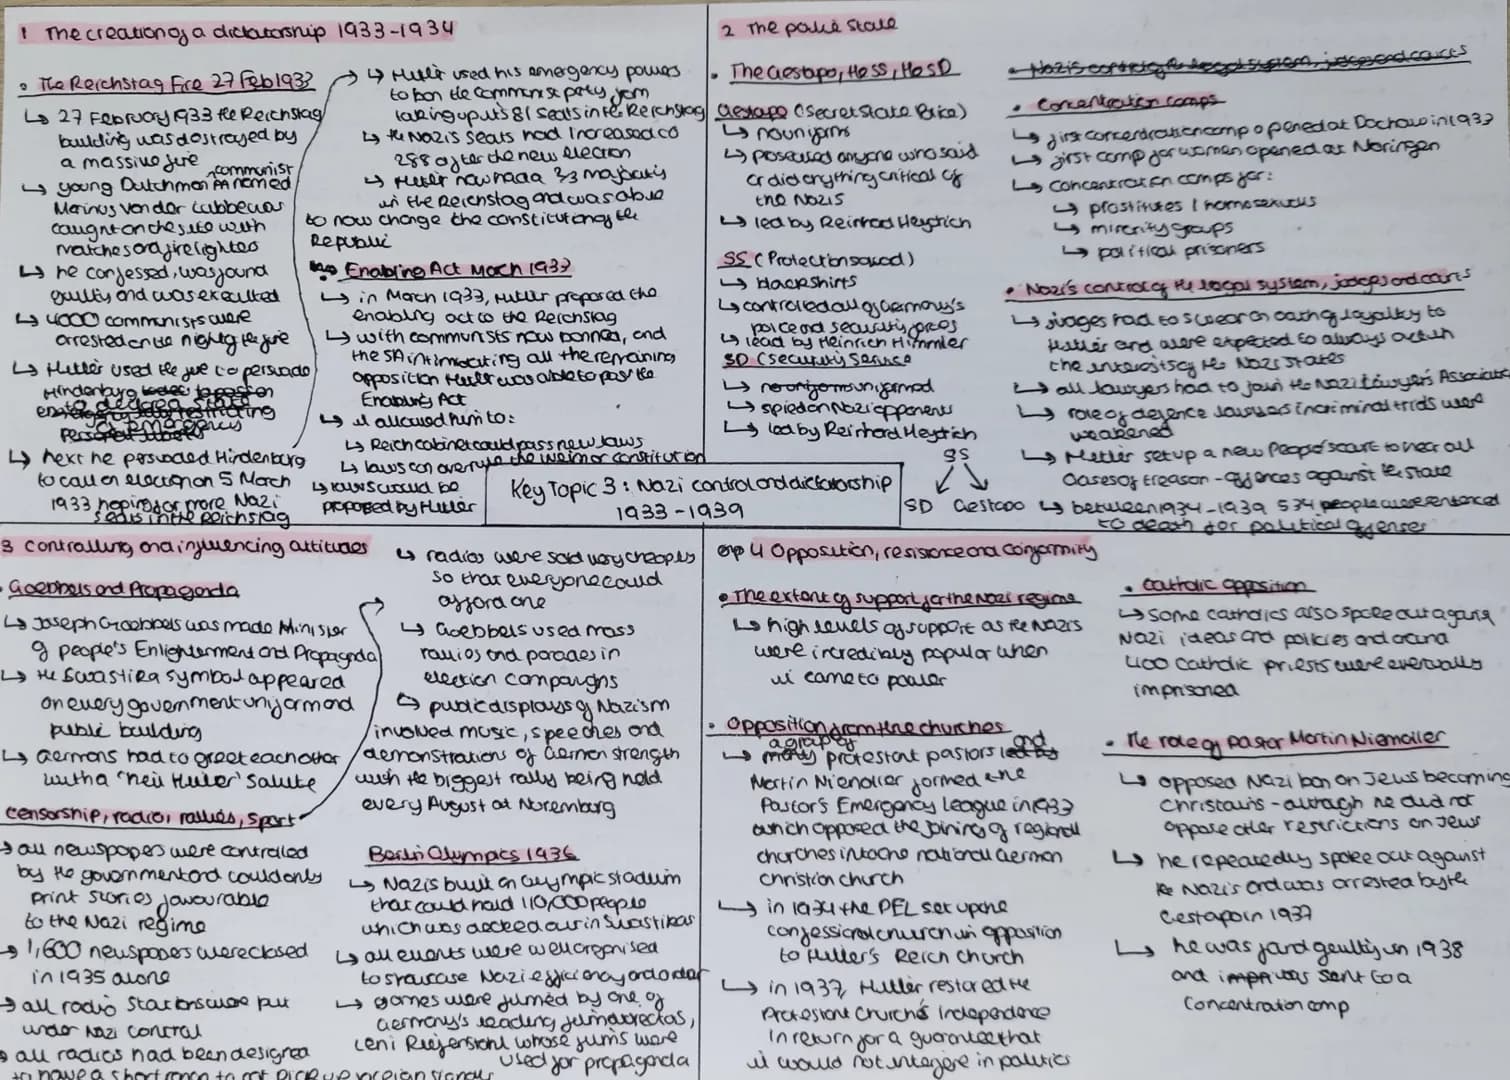 1 The creation of a dictatorship 1933-1934
• The Reichstag Fire 27 Feb 1933
↳ 27 February 1933 the Reichstag
building was destroyed by
a massive fire
communist
↳ young Dutchman named
Marinus Van der Lubbe was
caught on the site with
matches and firelighters
↳ he confessed, was found
guilty and was executed
↳ 4000 communists were
arrested on the night of the fire
↳ Hitler used the fire to persuade
Hindenburg
to declare a state
of emergency
↳ Next he persuaded Hindenburg
to call an election on 5 March
1933 hoping for more Nazi
seats in the Reichstag
↳ Hitler used his emergency powers
to ban the Communist party from
taking up its 81 seats in the Reichstag
↳ the Nazis seats had increased to
288 after the new election
↳ Hitler now had a 2/3 majority
in the Reichstag and was able
to now change the constitution of the
Republic
Enabling Act March 1933
↳ in March 1933, Hitler proposed the
enabling act to the Reichstag
↳ with communists now banned, and
the SA intimidating all the remaining
opposition Hitler was able to pass the
Enabling Act
↳ it allowed him to:
↳ Reich cabinet could pass new laws
↳ laws can overrule the weimar constitution
↳ laws could be
proposed by Hitler
2 The police state
• The Gestapo, The SS, The SD
Gestapo (Secret State Police)
↳ no uniforms
↳ prosecuted anyone who said
or did anything critical of
the Nazis
↳ led by Reinhard Heydrich
SS (Protection squad)
↳ blackshirts
↳ controlled all of Germany's
police and security forces
↳ lead by Heinrich Himmler
SD (Security Service
↳ uniformed
↳ spied on Nazi opponents
↳ led by Reinhard Heydrich
SS
SD Gestapo
• Nazis control of the legal system, judges and courts
• Concentration camps
↳ first concentration camp opened at Dachau in 1933
↳ first camp for women opened at Moringen
↳ concentration camps for:
↳ prostitutes / homosexuals
↳ minority groups
↳ political prisoners
• Nazi's control of the legal system, judges and courts
↳ judges had to swear an oath of loyalty to
Hitler and were expected to always act in
the interests of the Nazi states
↳ all lawyers had to join the Nazi Lawyers Associat
↳ role of defence lawyers in criminal trials were
weakened
↳ Hitler set up a new People's court to hear all
cases of treason - offences against the state
↳ between 1934-1939 534 people were sentenced
to death for political offenses
Key Topic 3: Nazi control and dictatorship
1933-1939
3 Controlling and influencing attitudes
• Goebbels and Propaganda
↳ Joseph Goebbels was made Minister
of people's Enlightenment and Propaganda
↳ the Swastika symbol appeared
on every government uniform and
public building
↳ Germans had to greet each other
with a "heil Hitler" salute
Censorship, radio, rallies, sport
→ all newspapers were controlled
by the government and could only
print stories favourable
to the Nazi regime
→ 1,600 newspapers were closed
in 1935 alone
→ all radio stations were put
under Nazi control
→ all radios had been designed
to have a short range to not pick up foreign signals
↳ radios were sold very cheaply
so that everyone could
afford one
↳ Goebbels used mass
rallies and parades in
election campaigns
↳ public displays of Nazism
involved music, speeches and
demonstrations of German strength
with the biggest rally being held
every August at Nuremburg
Berlin Olympics 1936
↳ Nazis built an Olympic stadium
that could hold 110,000 people
which was decked out in Swastikas
↳ all events were well organised
to showcase Nazi efficiency and order
↳ games were filmed by one of
Germany's leading film directors,
Leni Riefenstahl whose films were
used for propaganda
4 Opposition, resistance and conformity
• The extent of support for the Nazi regime
↳ high levels of support as the Nazis
were incredibly popular when
it came to power
• Opposition from the churches
a group of
↳ many protestant pastors led by and
Martin Niemoller formed the
Pastor's Emergency League in 1933
which opposed the joining of regional
churches into one national German
Christian church
↳ in 1934 the PEL set up the
confessional church in opposition
to Hitler's Reich Church
↳ in 1937, Hitler restored the
Protestant Church's independence
in return for a guarantee that
it would not interfere in politics
• Catholic opposition
↳ Some catholics also spoke out against
Nazi ideas and policies and around
400 Catholic priests were eventually
imprisoned
• The role of pastor Martin Niemoller
↳ opposed Nazi ban on Jews becoming
Christains - although he did not
oppose other restrictions on Jews
↳ he repeatedly spoke out against
the Nazi's and was arrested by the
Gestapo in 1937
↳ he was found guilty in 1938
and was sent to a
Concentration camp